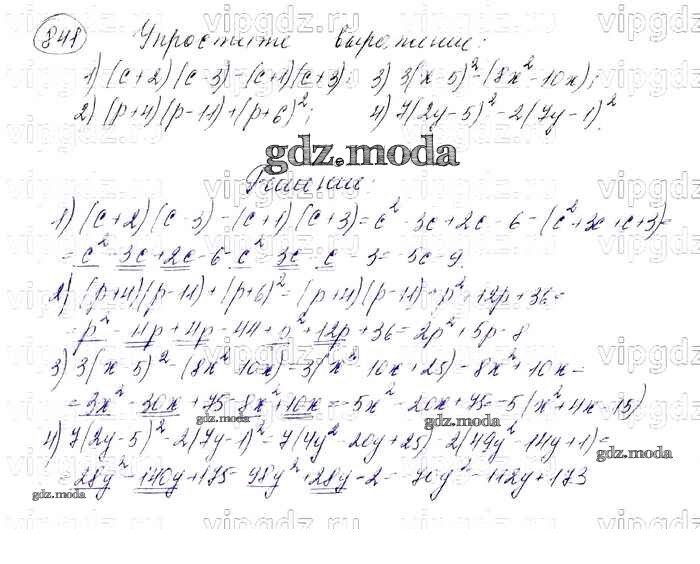 841 Упростите выражение:
1) (c+2)(c-3)-(c+1)(c+3); 3) 3(x-5)²-(8x²-10x);
2) (p+4)(p-11)+(p+6)²; 4) 7(2y-5)²-2(7y-1)².
gdz.moda
Решение:
1) (c+2)(c-3)-(c+1)(c+3)=c²-3c+2c-6-(c²+3c+c+3)=
=c²-3c+2c-6-c²-3c-c-3=-5c-9.
2) (p+4)(p-11)+(p+6)²=(p+4)(p-11)+p²+12p+36=
=p²-11p+4p-44+p²+12p+36=2p²+5p-8
3) 3(x-5)²-(8x²-10x)=3(x²-10x+25)-8x²+10x=
=3x²-30x+75-8x²+10x=-5x²-20x+75=-5(x²+4x-15)
gdz.moda gdz.moda
4) 7(2y-5)²-2(7y-1)²=7(4y²-20y+25)-2(49y²-14y+1)=
gdz.moda
=28y²-140y+175-98y²+28y-2=-70y²-112y+173
gdz.moda